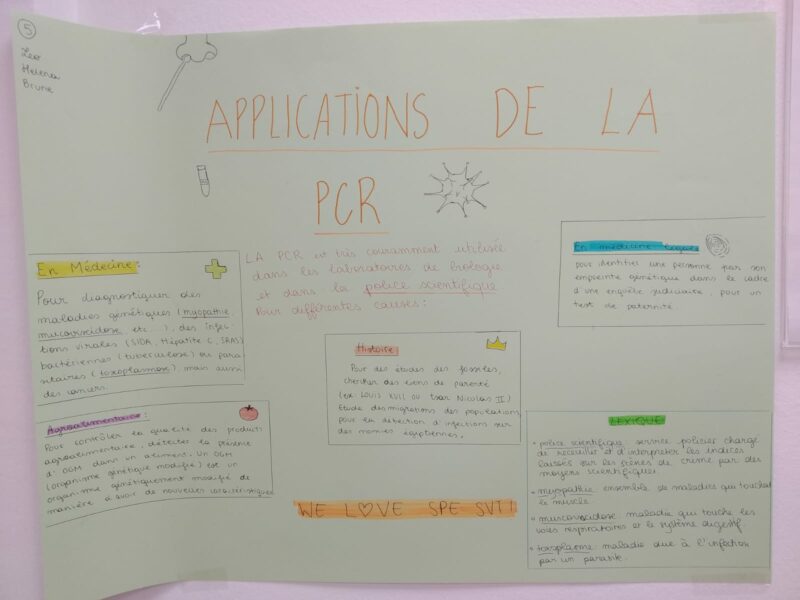 5
Leo
Helena
Brune
APPLICATIONS DE LA
PCR
LA PCR est très couramment utilisée
dans les laboratoires de biologie
et dans la police scientifique
Pour différentes causes:
En Médecine:
Pour diagnostiquer des
maladies génétiques (myopathie
mucoviscidose etc...), des infec-
tions virales (SIDA, Hépatite C, SRAS)
bactériennes (tuberculose) ou para-
sitaires (toxoplasmose), mais aussi
des cancers.
Agroalimentaire:
Pour contrôler la qualité des produits
agroalimentaire, détecter la présence
d'OGM dans un aliment. Un OGM
(organisme génétique modifié) est un
organisme génétiquement modifié de
manière à avoir de nouvelles caractéristiques
Histoire:
Pour des études des fossiles,
chercher des liens de parenté
(ex: Louis XVII ou tsar Nicolas II)
Etude des migrations des populations,
pour la détection d'infections sur
des momies égyptiennes.
En médecine légale
pour identifier une personne par son
empreinte génétique dans le cadre
d'une enquête judiciaire, pour un
test de paternité.
LEXIQUE
• police scientifique: service policier chargé
de recueillir et d'interpréter les indices
laissés sur les scènes de crime par des
moyens scientifiques.
• myopathie: ensemble de maladies qui touchent
le muscle.
• mucoviscidose: maladie qui touche les
voies respiratoires et le système digestif.
• toxoplasme: maladie due à l'infection
par un parasite.
WE L♡VE SPE SVT!